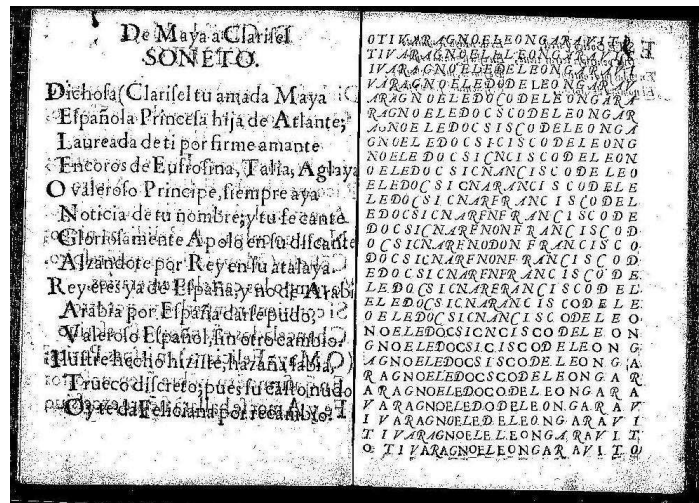 De Maya a Clarisel
SONETO.
Dichosa (Clarisel tu amada Maya
Española Princesa hija de Atlante;
Laureada de ti por firme amante
En coros de Eufrosina, Talia, Aglaya
O valeroso Principe, siempre aya
Noticia de tu nombre; y tu fe cante
Gloriosamente Apolo en su discante
Alzandote por Rey en su atalaya.
Rey eres ya de España, y no de Arabia
Arabia por España darse pudo,
Valeroso Español, sin otro cambio.
Ilustre hecho hiziste, hazaña sabia,
Trueco discreto; pues su casto nudo
Oy te da Feliciana por recambio.
OTIVARAGNOELEONGARAVITO
TIVARAGNOELELEONGARAVIT
IVARAGNOELEDELEONGARAVI
VARAGNOELEDODELEONGARAV
ARAGNOELEDOCODELEONGARA
RAGNOELEDOCSCODELEONGAR
AGNOELEDOCSISCODELEONGA
GNOELEDOCSICISCODELEONG
NOELEDOCSICNCISCODELEON
OELEDOCSICNANCISCODELEO
ELEDOCSICNARANCISCODELE
LEDOCSICNARFRANCISCODEL
EDOCSICNARFNFRANCISCODE
DOCSICNARFNONFRANCISCOD
OCSICNARFNODONFRANCISCO
DOCSICNARFNONFRANCISCOD
EDOCSICNARFNFRANCISCODE
LEDOCSICNARFRANCISCODEL
ELEDOCSICNARANCISCODELE
OELEDOCSICNANCISCODELEO
NOELEDOCSICNCISCODELEON
GNOELEDOCSICISCODELEONG
AGNOELEDOCSISCODELEONGA
RAGNOELEDOCSCODELEONGAR
ARAGNOELEDOCODELEONGARA
VARAGNOELEDODELEONGARAV
IVARAGNOELEDELEONGARAVI
TIVARAGNOELELEONGARAVIT
OTIVARAGNOELEONGARAVITO